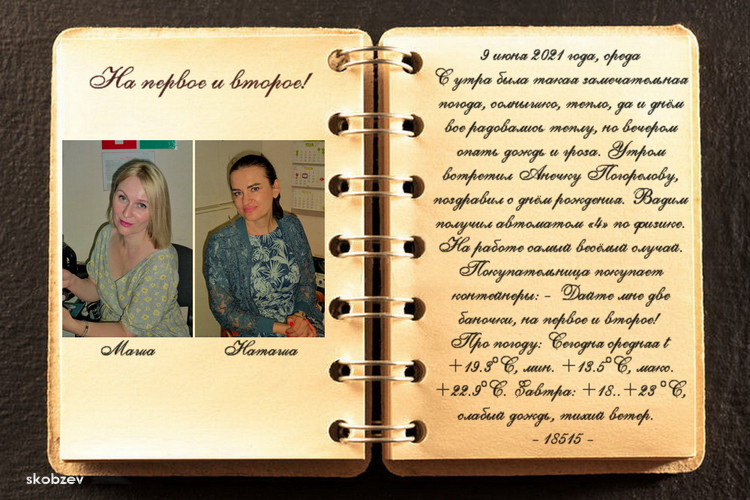 На первое и второе!
Маша
Наташа
9 июня 2021 года, среда
С утра была такая замечательная
погода, солнышко, тепло, да и днём
все радовались теплу, но вечером
опять дождь и гроза. Утром
встретил Анечку Погорелову,
поздравил с днём рождения. Вадим
получил автоматом «4» по физике.
На работе самый весёлый случай.
Покупательница покупает
контейнеры: - Дайте мне две
баночки, на первое и второе!
Про погоду: Сегодня средняя t
+19.3°C, мин. +13.5°C, макс.
+22.9°C. Завтра: +18..+23 °C,
слабый дождь, тихий ветер.
- 18515 -
skobzev